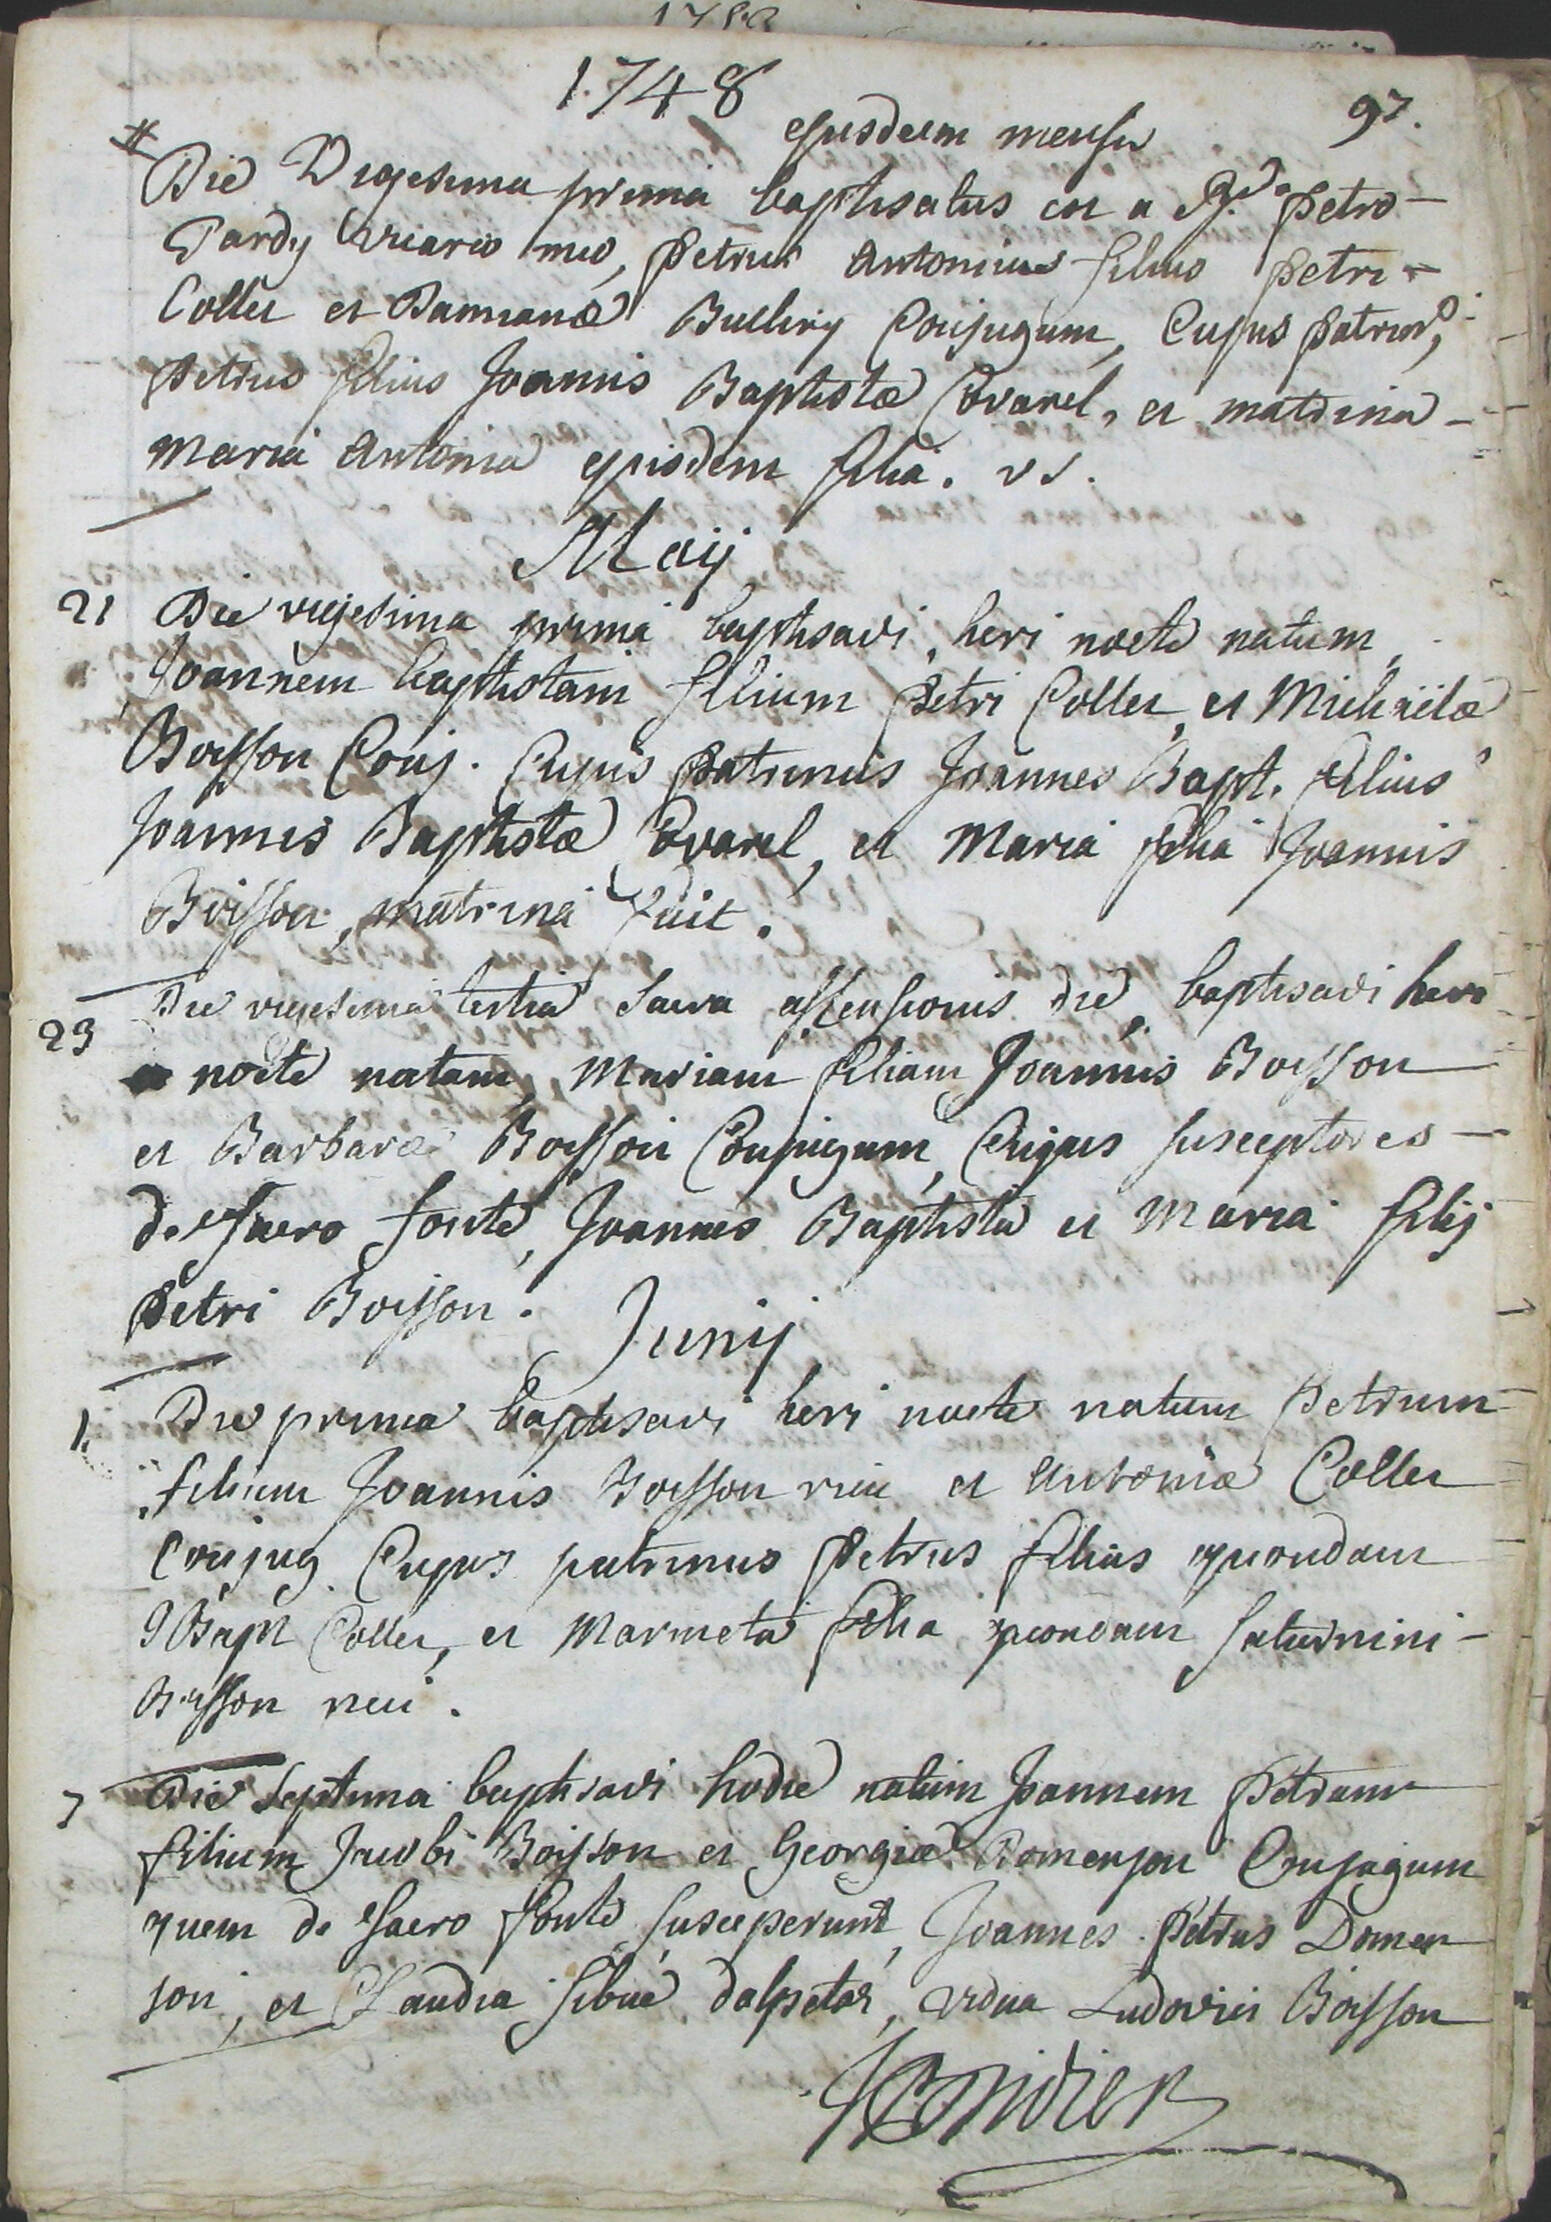 1748
97.
ejusdem mensis
Die Vigesima prima baptisatus est a Rdo. Petro
Tardy vicario meo, Petrus Antonius filius Petri
Collet et Damianæ Bulliny Conjugum, Cujus Patrinus,
Petrus filius Joannis Baptistæ Covarel, et matrina
Maria Antonia ejusdem filia. vs.
Maij
21 Die vigesima prima baptisavi, heri nocte natum,
Joannem baptistam filium Petri Collet, et Michaëlæ
Boisson Conj. Cujus Patrinus Joannes Bapt. filius
Joannis Baptistæ Covarel, et Maria filia Joannis
Boisson, matrina fuit.
23 Die vigesima tertia sacra assensionis die, baptisavi heri
nocte natam, Mariam filiam Joannis Boisson
et Barbaræ Boisson Conjugum, Cujus susceptores
de sacro fonte, Joannes Baptista et Maria filij
Petri Boisson.
Junij
1. Die prima baptisavi heri nocte natum Petrum
filium Joannis Boisson et Antoniæ Collet
Conjug. Cujus patrinus Petrus filius quondam
Collet, et Marieta filia quondam Saturnini
Boisson
7 Die septima baptisavi hodie natum Joannem Petrum
filium Jacobi Boisson et Georgiæ Domenson Conjugum
quem de sacro fonte susceperunt, Joannes Petrus Domen
son, et Claudia silvæ dalpetaz, vidua Ludovici Boisson